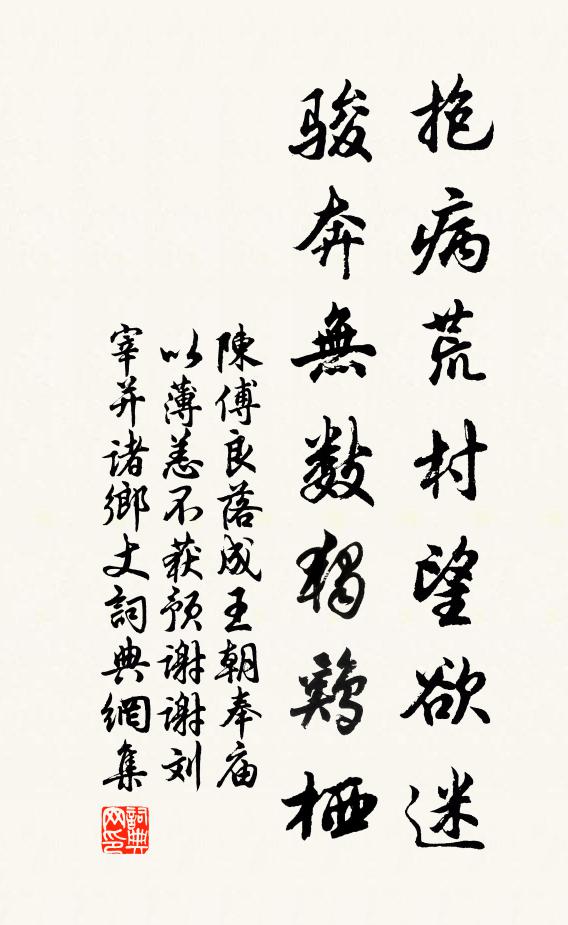 抱病荒村望欲迷
駿奔無數獨鷄栖
陳傅良落成王朝奉庙
以薄恙不获预謝謝刘
宰并诸鄉丈詞典網集
詞典网印